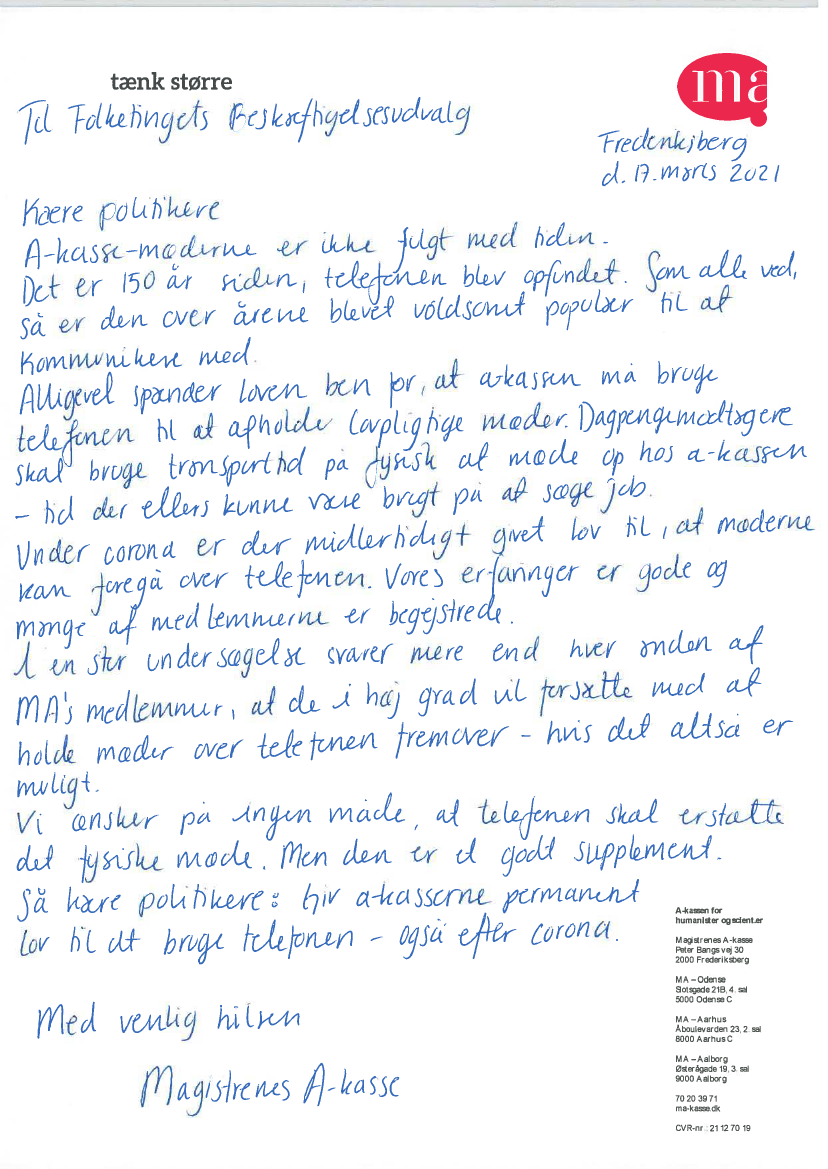 tænk større
ma
Til Folketingets Beskæftigelsesudvalg
Frederiksberg
d. 17. marts 2021
Kære politikere
A-kasse-møderne er ikke fulgt med tiden.
Det er 150 år siden, telefonen blev opfundet. Som alle ved,
så er den over årene blevet voldsomt populær til at
kommunikere med.
Alligevel spænder loven ben for, at a-kassen må bruge
telefonen til at afholde lovpligtige møder. Dagpengemodtagere
skal bruge transporttid på fysisk at møde op hos a-kassen
– tid der ellers kunne være brugt på at søge job.
Under corona er der midlertidigt givet lov til, at møderne
kan foregå over telefonen. Vores erfaringer er gode og
mange af medlemmerne er begejstrede.
I en stor undersøgelse svarer mere end hver anden af
MA's medlemmer, at de i høj grad vil forsætte med at
holde møder over telefonen fremover – hvis det altså er
muligt.
Vi ønsker på ingen måde, at telefonen skal erstatte
det fysiske møde. Men den er et godt supplement.
Så kære politikere: Giv a-kasserne permanent
lov til at bruge telefonen – også efter corona.
Med venlig hilsen
Magistrenes A-kasse
A-kassen for
humanister og scient.er
Magistrenes A-kasse
Peter Bangs vej 30
2000 Frederiksberg
MA – Odense
Slotsgade 21B, 4. sal
5000 Odense C
MA – Aarhus
Åboulevarden 23, 2. sal
8000 Aarhus C
MA – Aalborg
Østerågade 19, 3. sal
9000 Aalborg
70 20 39 71
ma-kasse.dk
CVR-nr.: 21 12 70 19